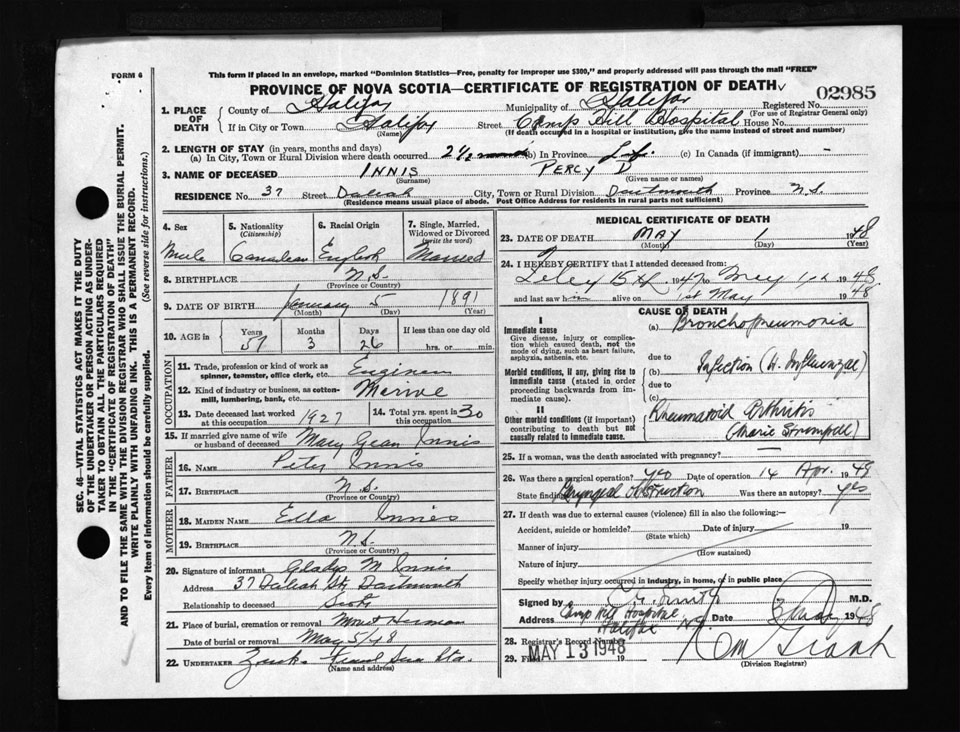 This form if placed in an envelope, marked "Dominion Statistics—Free, penalty for improper use $300," and properly addressed will pass through the mail "FREE"
FORM 6
PROVINCE OF NOVA SCOTIA—CERTIFICATE OF REGISTRATION OF DEATH
02985
1. PLACE OF DEATH
County of Halifax Municipality of Halifax Registered No.
(For use of Registrar General only)
If in City or Town Halifax Street Camp Hill Hospital House No.
(Name) (If death occurred in a hospital or institution, give the name instead of street and number)
2. LENGTH OF STAY (in years, months and days)
(a) In City, Town or Rural Division where death occurred 2½ (b) In Province Life (c) In Canada (if immigrant) –
3. NAME OF DECEASED INNIS PERCY D
(Surname) (Given name or names)
RESIDENCE No. 37 Street Daliah City, Town or Rural Division Dartmouth Province N.S.
(Residence means usual place of abode. Post Office Address for residents in rural parts not sufficient)
4. Sex Male
5. Nationality (Citizenship) Canadian
6. Racial Origin English
7. Single, Married, Widowed or Divorced (write the word) Married
8. BIRTHPLACE N.S.
(Province or Country)
9. DATE OF BIRTH January 5 1891
(Month) (Day) (Year)
10. AGE in Years 57 Months 3 Days 26 If less than one day old hrs. or min.
OCCUPATION
11. Trade, profession or kind of work as spinner, teamster, office clerk, etc. Engineer
12. Kind of industry or business, as cotton-mill, lumbering, bank, etc. Marine
13. Date deceased last worked at this occupation 1927
14. Total yrs. spent in this occupation 30
15. If married give name of wife or husband of deceased Mary Jean Innis
FATHER
16. NAME Peter Innis
17. BIRTHPLACE N.S.
(Province or Country)
MOTHER
18. MAIDEN NAME Ella Innis
19. BIRTHPLACE N.S.
(Province or Country)
20. Signature of informant Gladys M Innis
Address 37 Daliah St, Dartmouth
Relationship to deceased
21. Place of burial, cremation or removal Mount Herman
Date of burial or removal May 5/48
22. UNDERTAKER
(Name and address)
MEDICAL CERTIFICATE OF DEATH
23. DATE OF DEATH MAY 1 1948
(Month) (Day) (Year)
24. I HEREBY CERTIFY that I attended deceased from:
15th 1947 to May 1st 1948
and last saw him alive on 1st May 1948
CAUSE OF DEATH
I
Immediate cause
Give disease, injury or complication which caused death, not the mode of dying, such as heart failure, asphyxia, asthenia, etc.
(a) Bronchopneumonia
due to
Morbid conditions, if any, giving rise to immediate cause (stated in order proceeding backwards from immediate cause).
(b) Infection (H. Influenzae)
due to
(c)
II
Other morbid conditions (if important) contributing to death but not causally related to immediate cause.
Rheumatoid Arthritis
(Marie Strumpell)
25. If a woman, was the death associated with pregnancy? —
26. Was there a surgical operation? yes Date of operation 14 Apr. 1948
State findings Laryngeal Obstruction Was there an autopsy? yes
27. If death was due to external causes (violence) fill in also the following:—
Accident, suicide or homicide? Date of injury 19
(State which)
Manner of injury
(How sustained)
Nature of injury
Specify whether injury occurred in industry, in home, or in public place
Signed by M.D.
Address Camp Hill Hospital Date 1948
Halifax NS
28. Registrar's Record Number
29. Filed MAY 13 1948 19
(Division Registrar)
SEC. 46—VITAL STATISTICS ACT MAKES IT THE DUTY OF THE UNDERTAKER OR PERSON ACTING AS UNDERTAKER TO OBTAIN ALL THE PARTICULARS REQUIRED IN THE "CERTIFICATE OF REGISTRATION OF DEATH"
AND TO FILE THE SAME WITH THE DIVISION REGISTRAR WHO SHALL ISSUE THE BURIAL PERMIT.
WRITE PLAINLY WITH UNFADING INK. THIS IS A PERMANENT RECORD.
Every item of information should be carefully supplied. (See reverse side for instructions.)